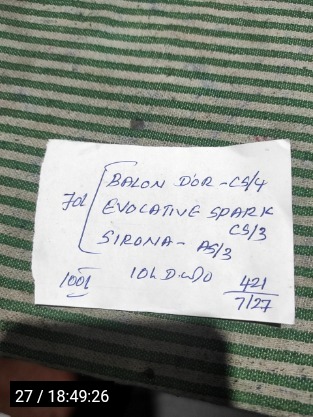 BALON D'OR - CS/4
70L EVOCATIVE SPARK
CS/3
SIRONA - AS/3
100L 10L D.W.D 421
7127
27 / 18:49:26